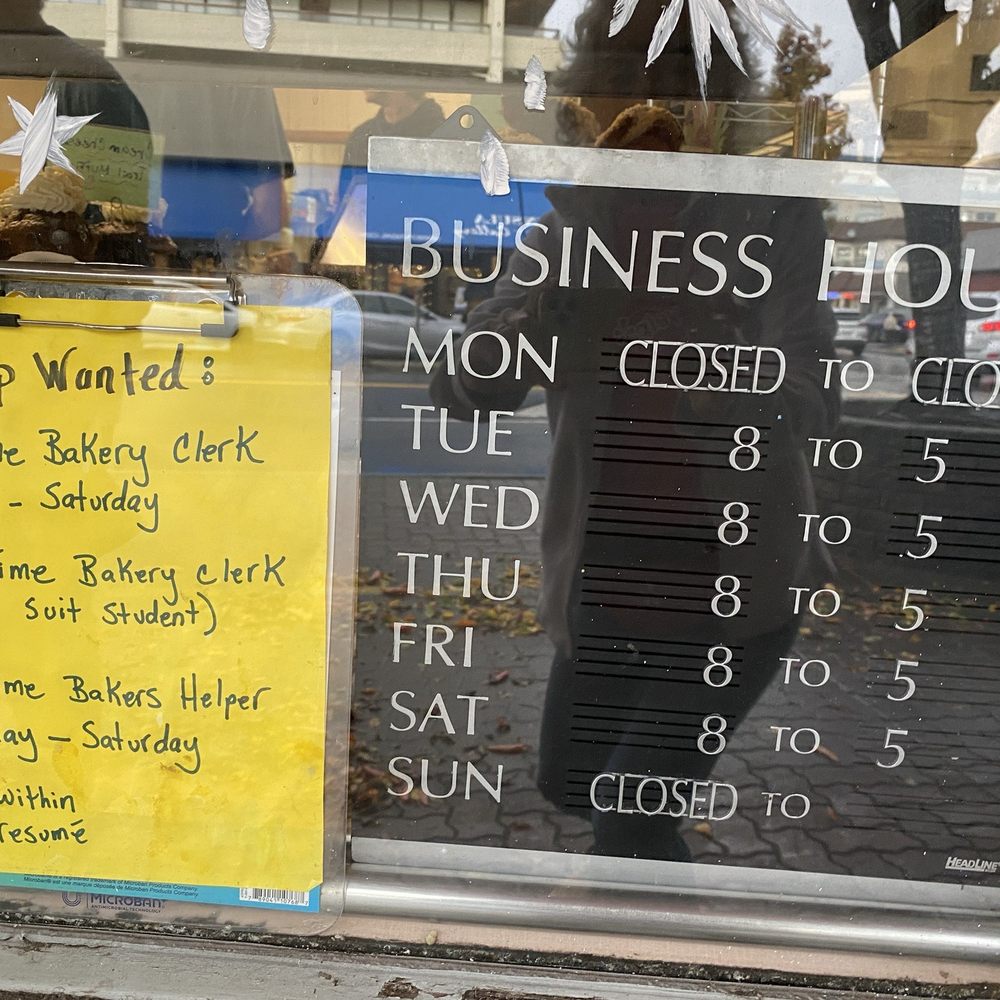 p Wanted:
e Bakery Clerk
- Saturday
ime Bakery clerk
suit student)
me Bakers Helper
ay - Saturday
within
resumé
Microban est une marque déposée de Microban Products Company.
MICROBAN
ANTIMICROBIAL TECHNOLOGY
BUSINESS HOU
MON CLOSED TO CLO
TUE 8 TO 5
WED 8 TO 5
THU 8 TO 5
FRI 8 TO 5
SAT 8 TO 5
SUN CLOSED TO
HEADLINE